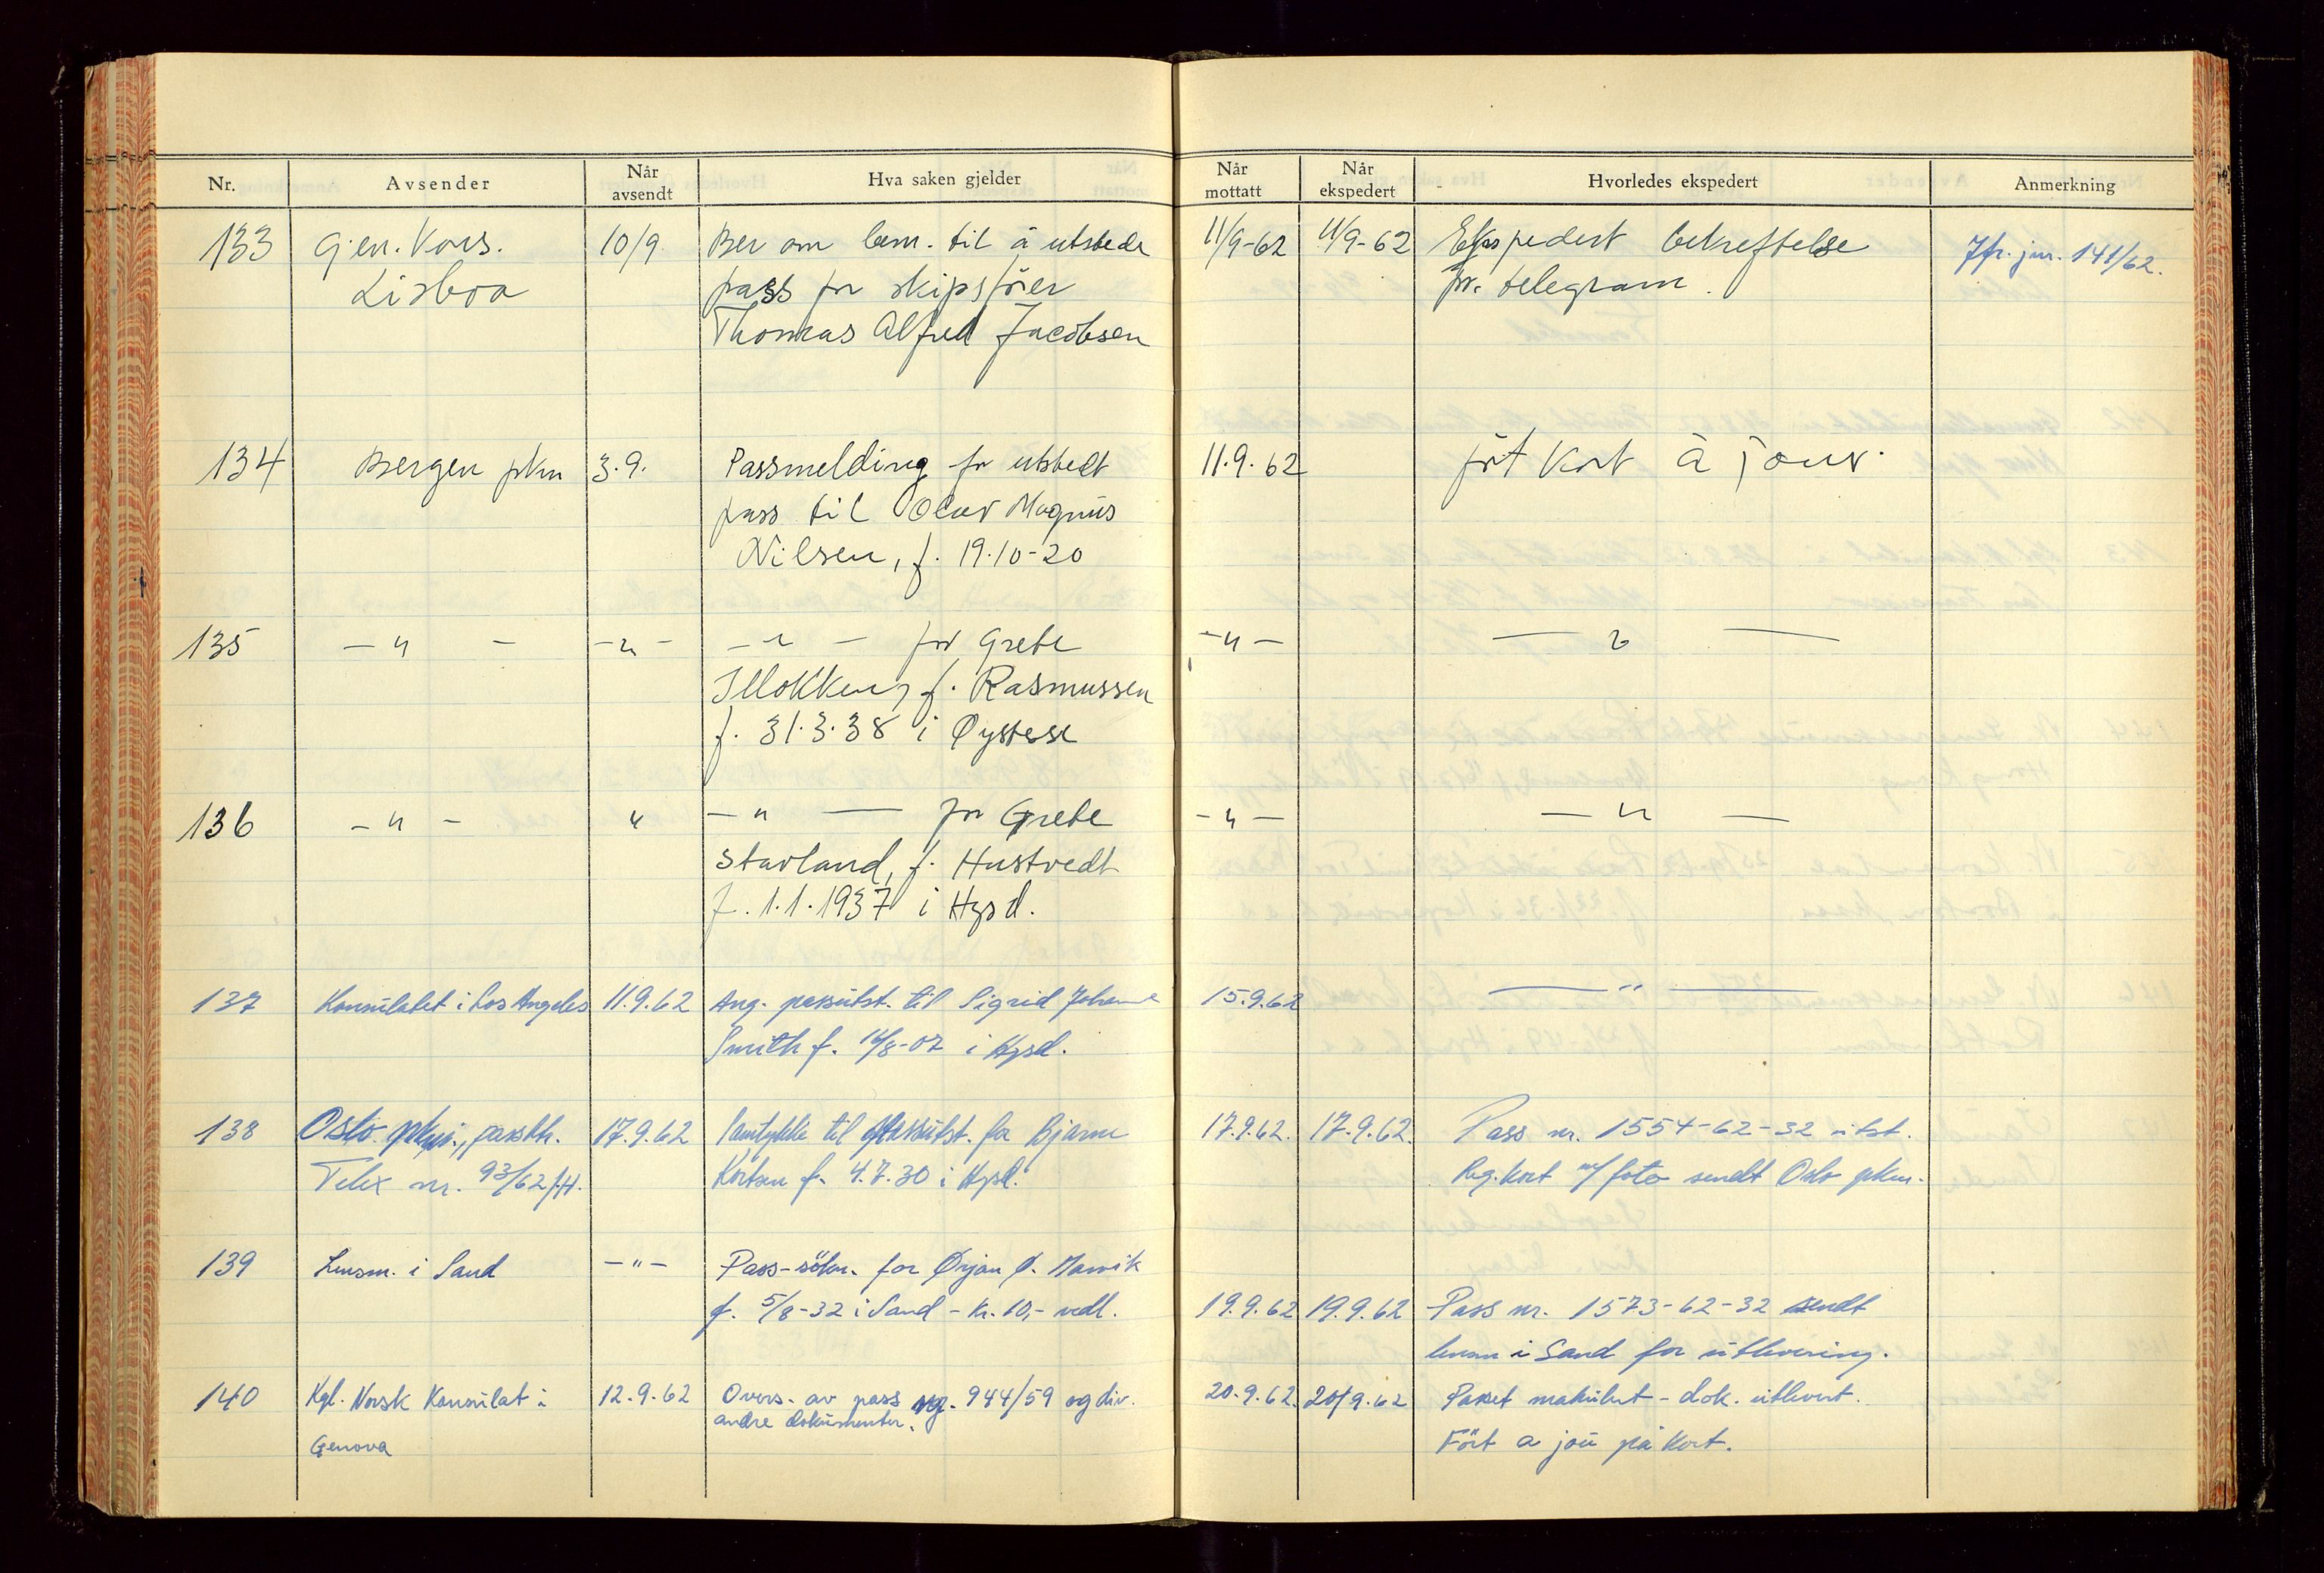 Nr. Avsender Når avsendt Hva saken gjelder Når mottatt Når ekspedert Hvorledes ekspedert Anmerkning
133 Gen. Kons. 10/9. Ber om bem. til å utstede 11/9-62 11/9-62 Ekspedert bekreftelse Jfr. jnr. 141/62.
Lisboa pass for skipsförer pr. telegram.
Thomas Alfred Jacobsen
134 Bergen pkm 3.9. Passmelding for utstedt 11.9.62 ført kort à jour.
pass til Olav Magnus
Nilsen, f. 19.10-20
135 — " — — " — — " — for Grete — " — — " —
Illokken, f. Rasmussen
f. 31.3.38 i Øystese
136 — " — " — " — for Grete — " — — " —
Stavland, f. Hustvedt
f. 1.1.1937 i Hgsd.
137 Konsulatet i Los Angeles 11.9.62 Ang. passutst. til Sigrid Johanne 15.9.62 — " —
Smith f. 14/8-07 i Hgsd.
138 Oslo pkm., passktr. 17.9.62 Samtykke til passutst. for Bjarne 17.9.62. 17.9.62. Pass nr. 1554-62-32 utst.
Telex nr. 93/62/H. f. 4.7.30 i Hgsd. Reg.kort m/foto sendt Oslo pkm.
139 Lensm. i Sand — " — Pass-søkn. for Ørjan Ø.
f. 5/8-32 i Sand - kr. 10,- vedl. 19.9.62 19.9.62 Pass nr. 1573-62-32 sendt
lensm i Sand for utlevering.
140 Kgl. Norsk Konsulat i 12.9.62 Overs. av pass reg. 944/59 og div. 20.9.62. 20/9.62 Passet makulert - dok. utlevert.
andre dokumenter.
Genova Ført a jou på kort.